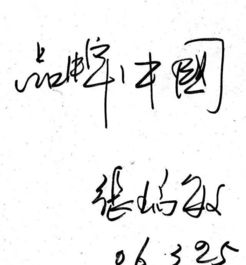 品牌中國
張⁠敏
06.3.25